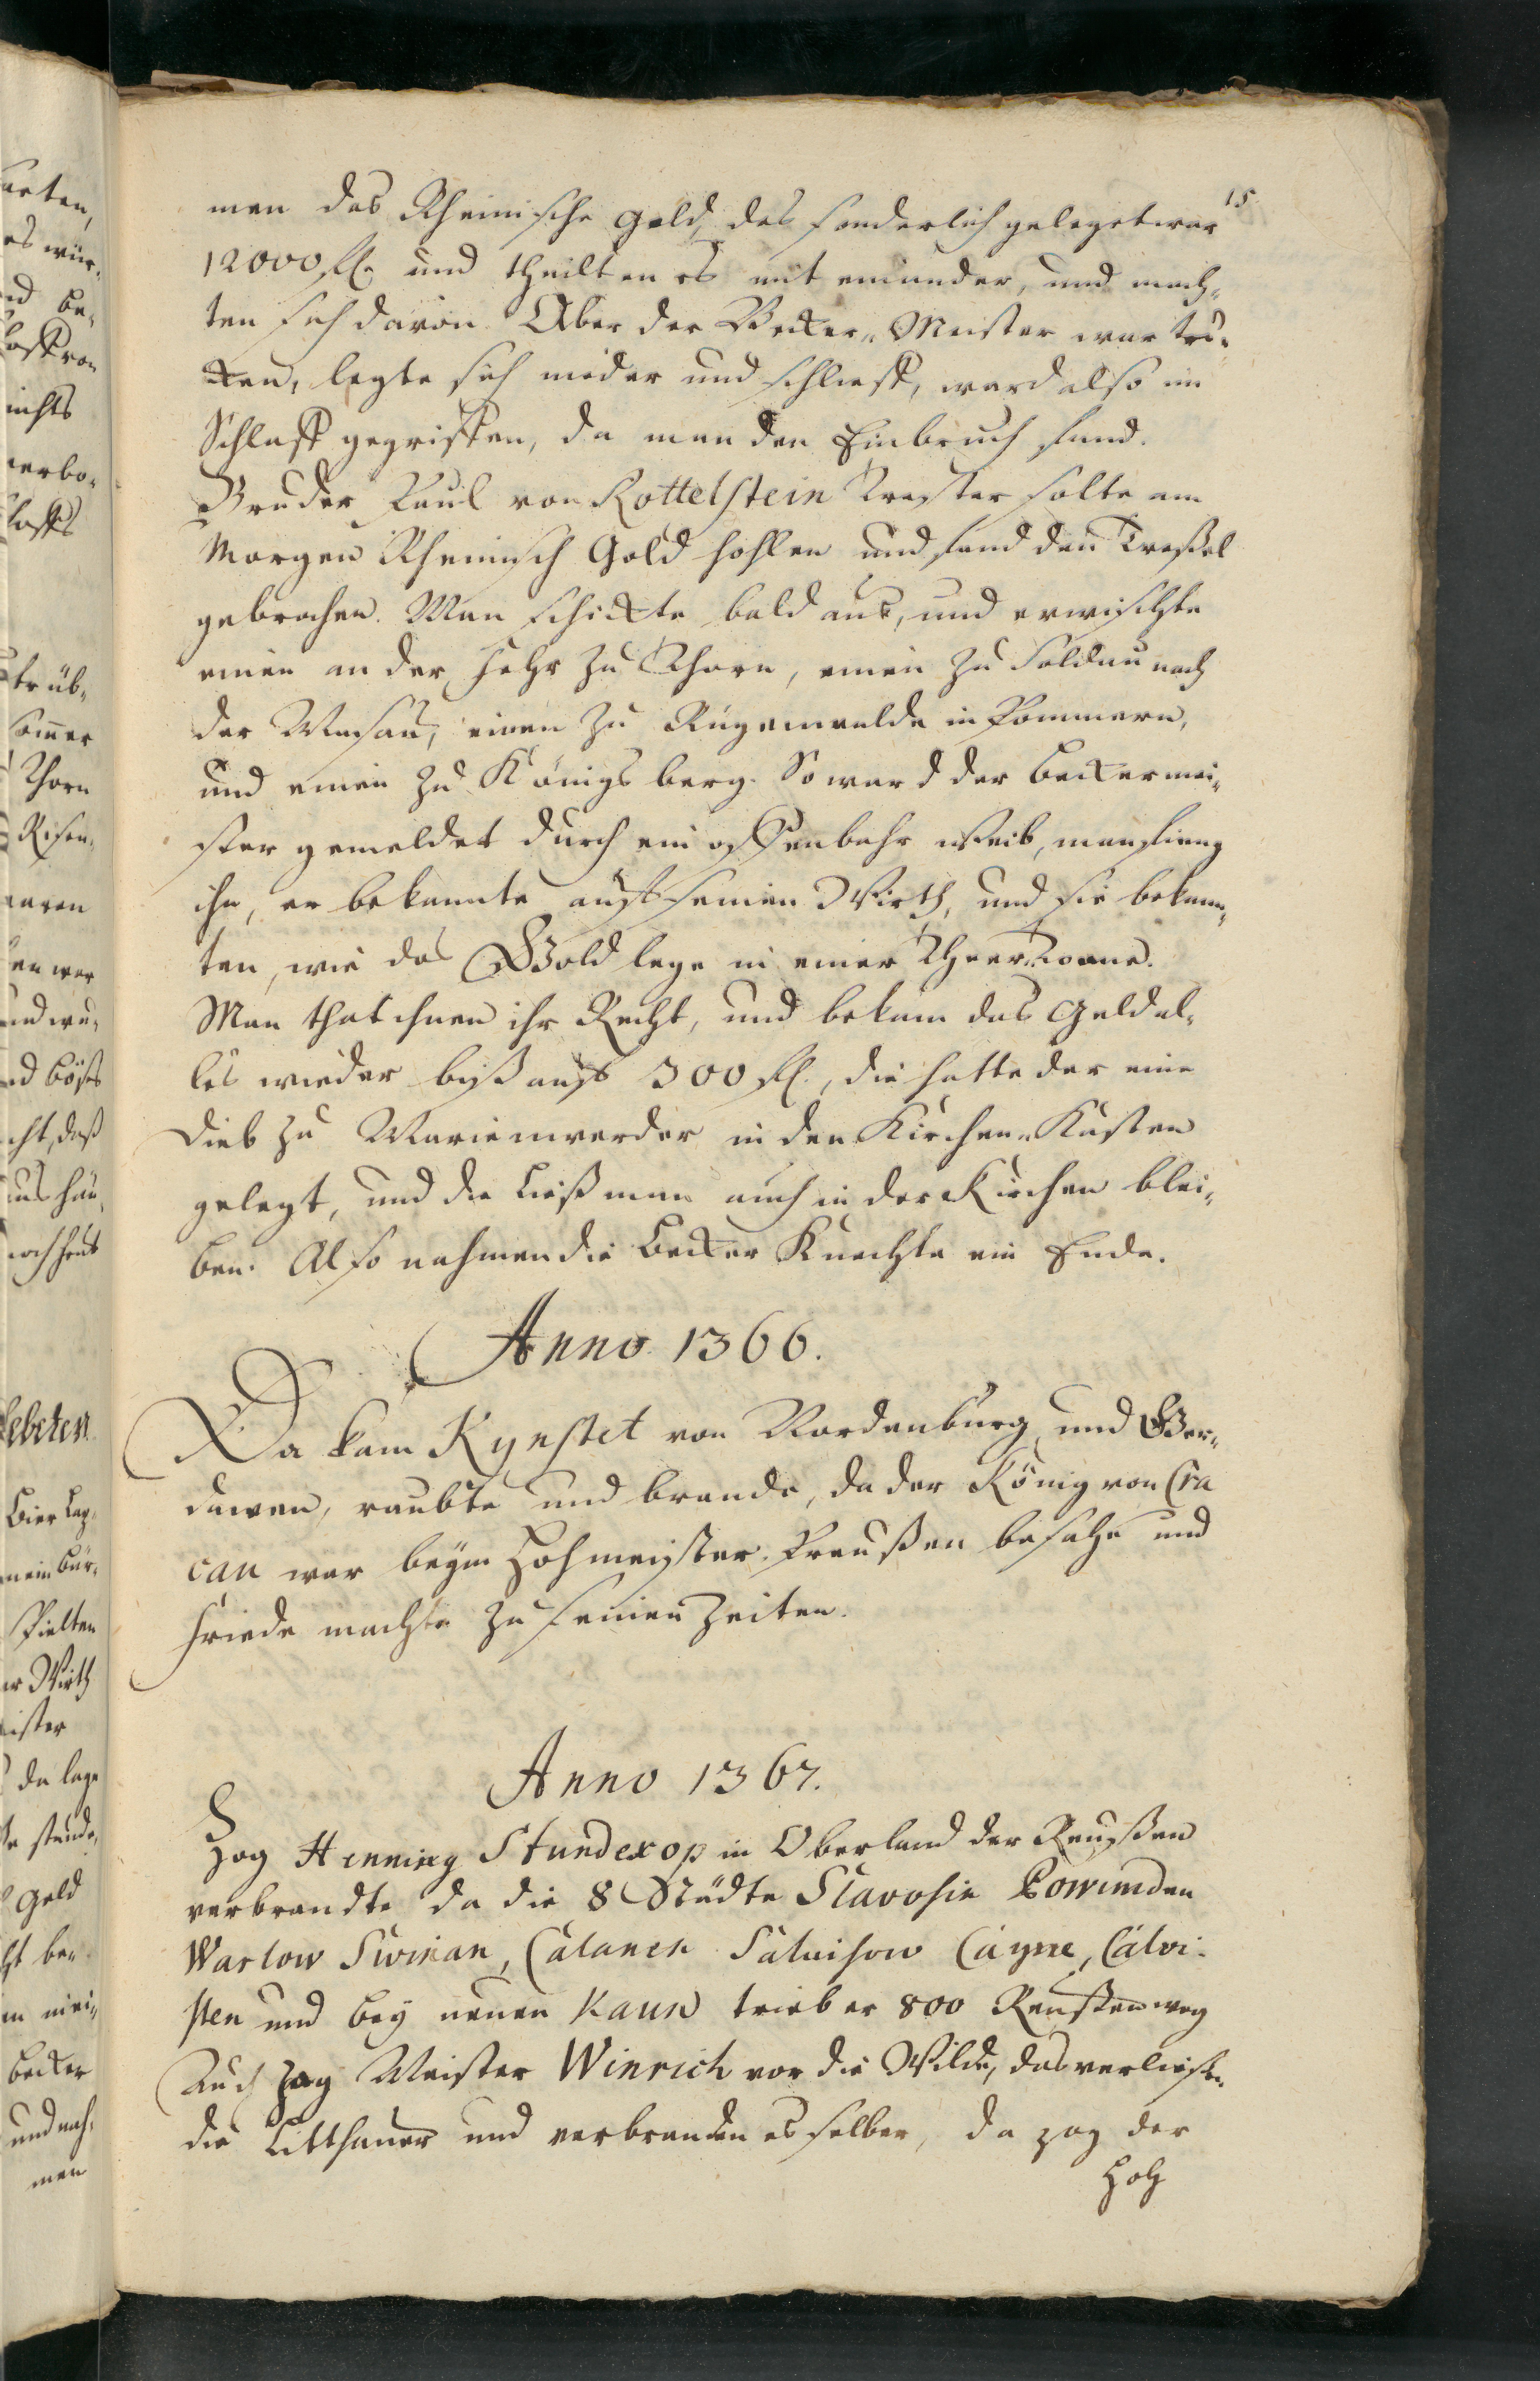 15
men das Rheinische Geld, das sonderlich geleget war
12000 fl. und theilten es mit einander, und mach-
ten sich davon. Aber der Becker-Meister war tru-
cken, legte sich nieder und schlieff, ward also im
Schlaff gegriffen, da man den Einbruch fand.
Bruder Paul von Rottelstein Tresler solte am
Morgen Rheinisch Gold hohlen und fand den Treßel
gebrochen. Man schickte bald aus, und erwischte
einen an der Fehr zu Thorn, einen zu Soldau nach
der Masau, einen zu Rügenwalde in Pommern,
und einen zu Königsberg. So ward der Beckermei-
ster gemeldet durch ein offenbahr Weib, man fieng
ihn, er bekannte auff seinen Wirth, und sie bekann-
ten, wie das Gold lege in einer Theer Tonne.
Man that ihnen ihr Recht, und bekam das Geld al-
les wieder biß auff 300 fl., die hatte der eine
Dieb zu Marienwerder in den Kirchen-Kasten
gelegt, und die ließ man auch in der Kirchen blei-
ben. Also nahmen die Becker Knechte ein Ende.
Anno 1366.
Da kam Kynstet von Nordenburg und Ger-
dawen, raubte und brande, da der König von Cra
cau war beym Hohmeyster Preußen besahe und
Friede machte zu seinen Zeiten.
Anno 1367.
Zog Henning Stundexop in Oberland der Reußen
verbrandte da die 8 Städte Slavosie Powunden
Warlow Swinan, Calanen Salvisow Cayne, Calvi-
sten und bey neuen Kaun trieb er 800 Reussen weg
Auch zog Meister Winrich vor die Wilde, das verliessen
die Litthauer und verbranden es selber, da zog der
Hoh